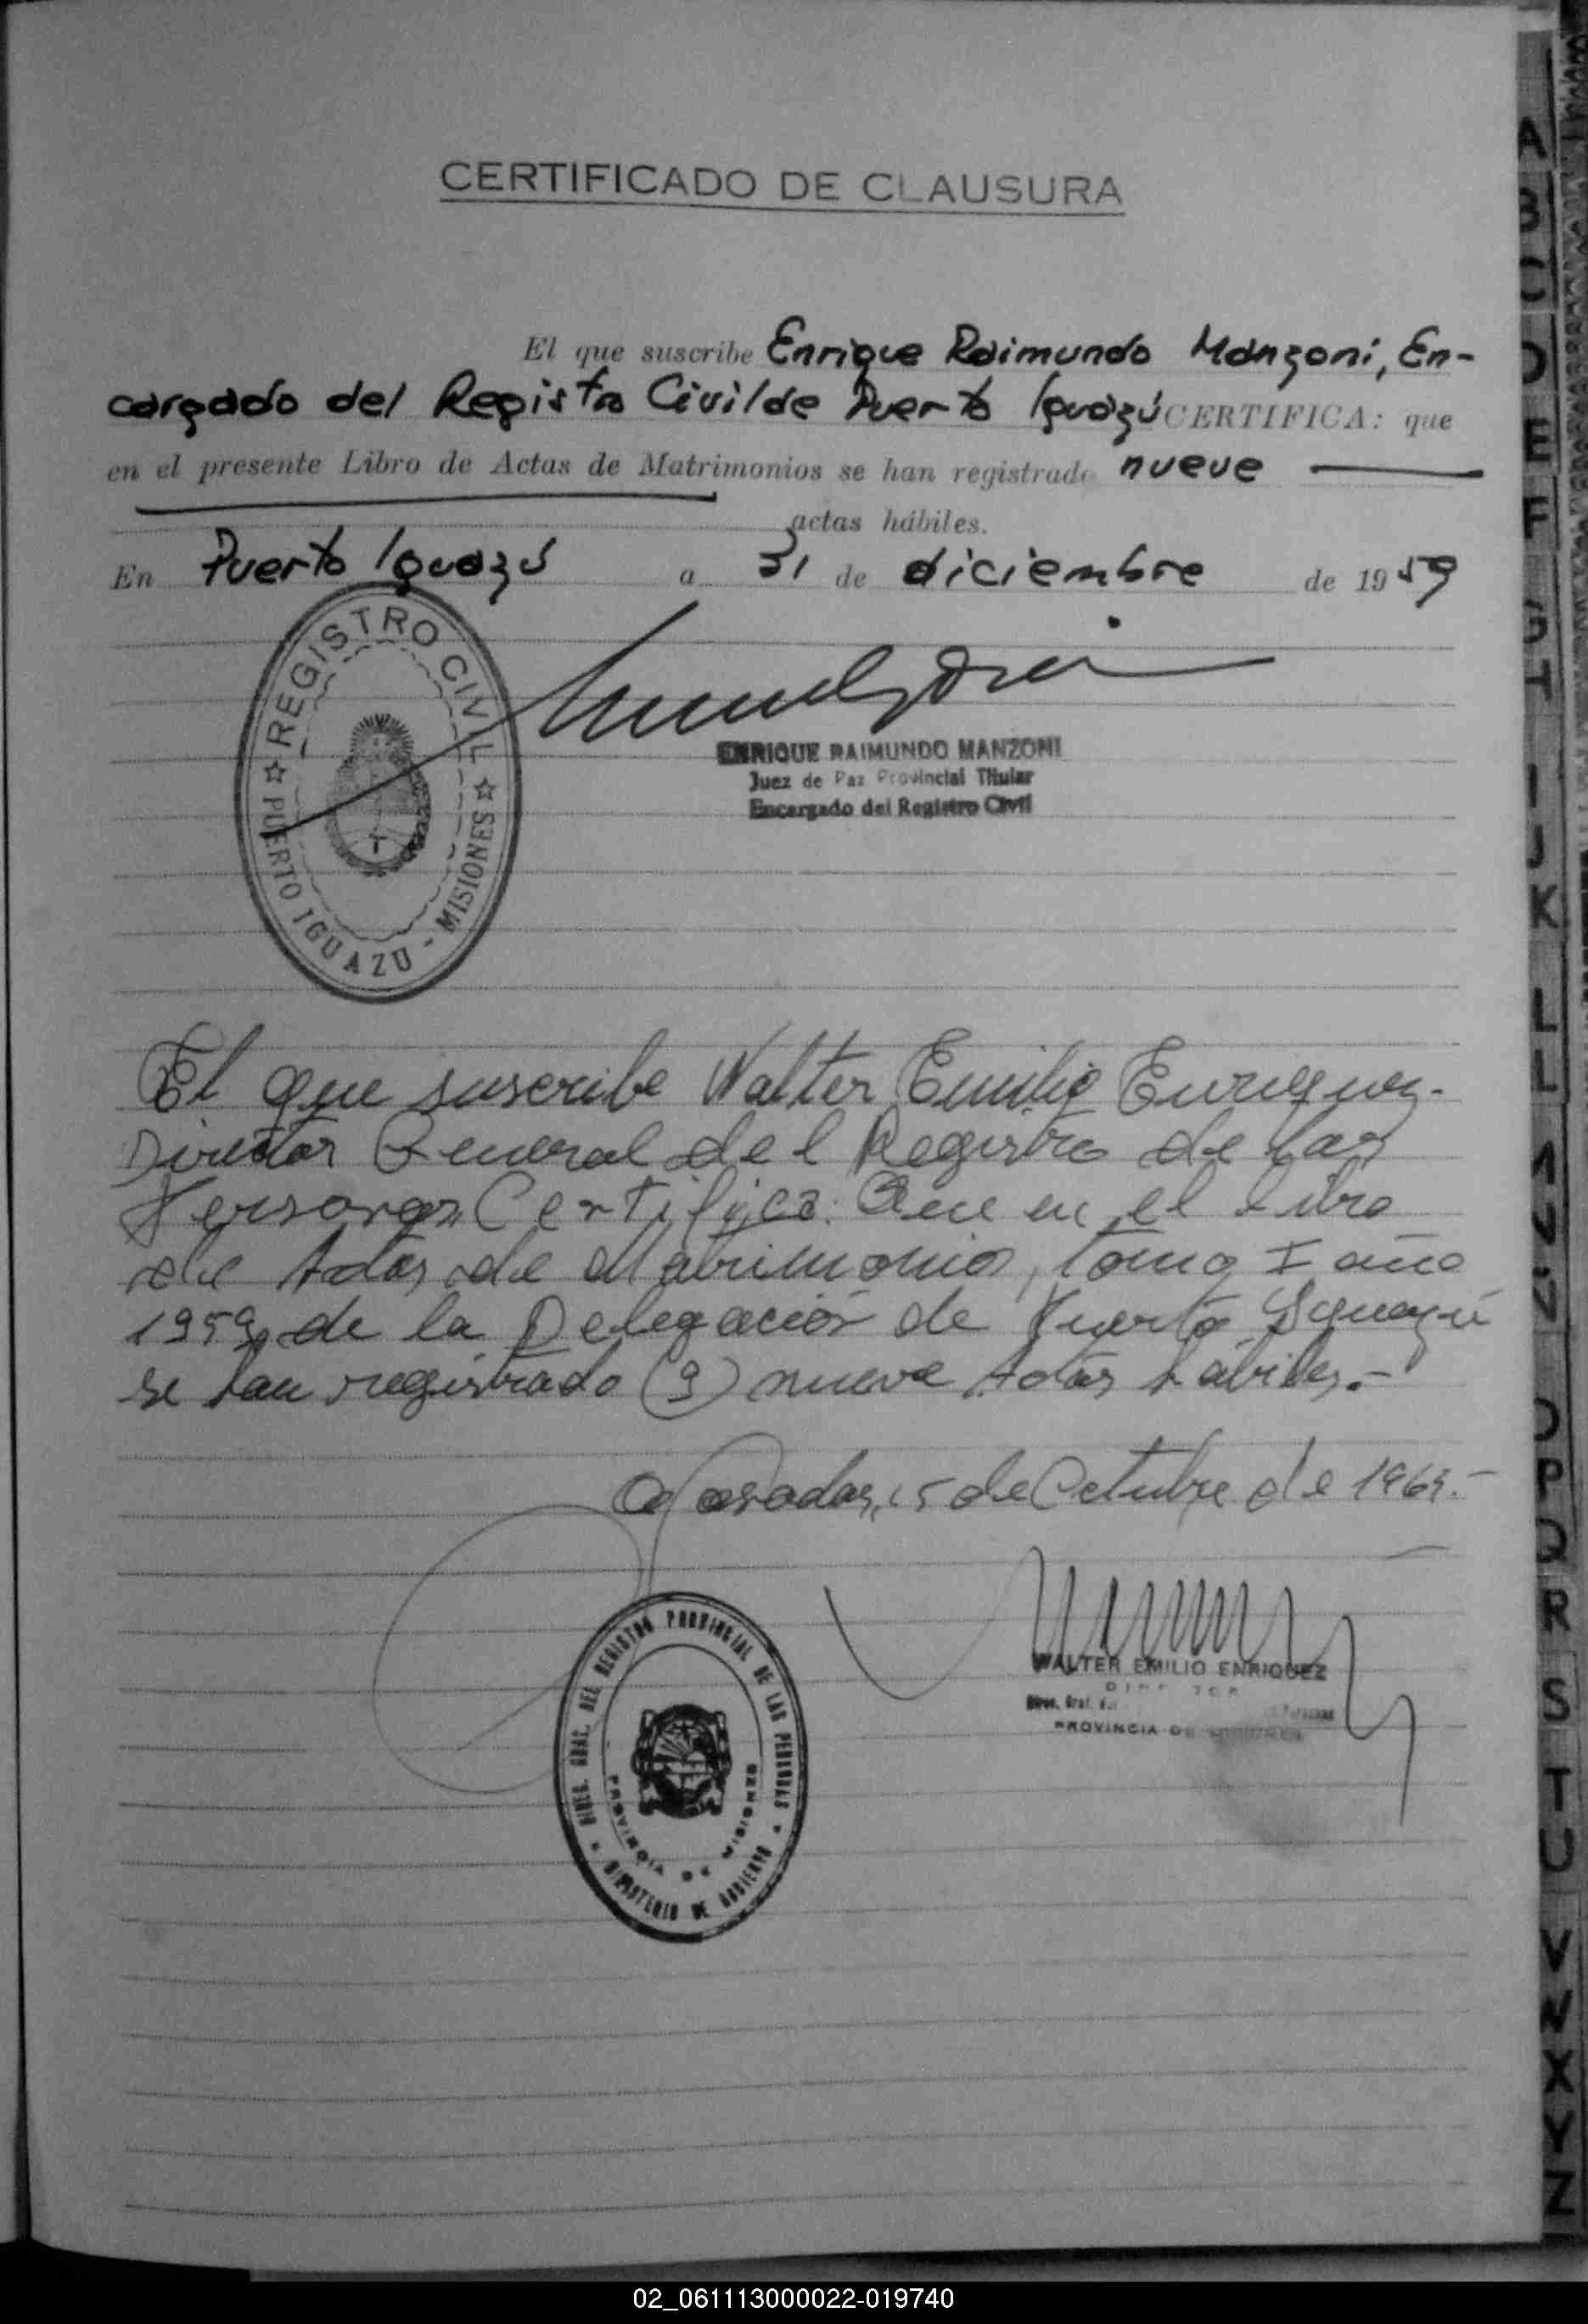 CERTIFICADO DE CLAUSURA
El que suscribe Enrique Raimundo Manzoni, En-
cargado del Registro Civil de Puerto Iguazú CERTIFICA: que
en el presente Libro de Actas de Matrimonios se han registrado nueve
actas hábiles.
En Puerto Iguazú a 31 de diciembre de 1959
REGISTRO CIVIL
PUERTO IGUAZU - MISIONES
ENRIQUE RAIMUNDO MANZONI
Juez de Paz Provincial Titular
Encargado del Registro Civil
El que suscribe Walter Emilio Enriquez.
Director General del Registro de las
Personas Certifica: Que en el Libro
de Actas de Matrimonios, tomo I año
1959, de la Delegación de Puerto Iguazú
se han registrado (9) nueve Actas hábiles.-
Posadas, 15 de Octubre de
DIREC. GRAL. DEL REGISTRO PROVINCIAL DE LAS PERSONAS
PROVINCIA DE MISIONES
MINISTERIO DE GOBIERNO
WALTER EMILIO ENRIQUEZ
Direc. Gral.
PROVINCIA DE MISIONES
A
B
C
D
E
F
G
H
I
J
K
L
LL
M
N
Ñ
O
P
Q
R
S
T
U
V
W
X
Y
Z
02_061113000022-019740